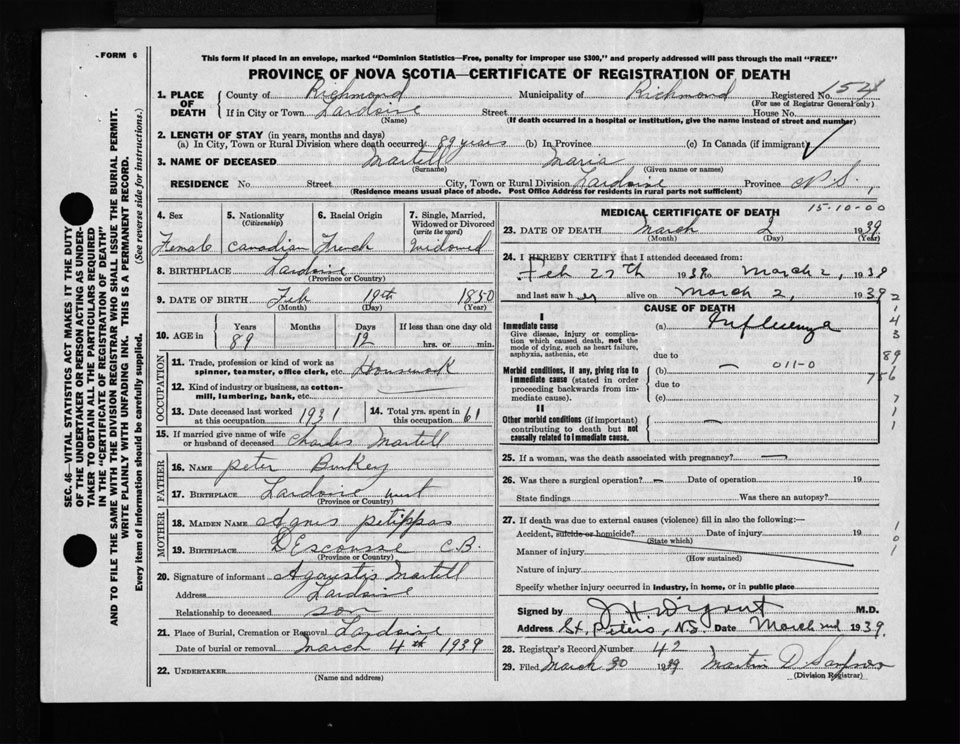 FORM 6
This form if placed in an envelope, marked "Dominion Statistics—Free, penalty for improper use $300," and properly addressed will pass through the mail "FREE"
PROVINCE OF NOVA SCOTIA—CERTIFICATE OF REGISTRATION OF DEATH
1. PLACE OF DEATH County of Richmond Municipality of Richmond Registered No. 154
(For use of Registrar General only)
If in City or Town Lardoise Street House No.
(Name) (If death occurred in a hospital or institution, give the name instead of street and number)
2. LENGTH OF STAY (in years, months and days)
(a) In City, Town or Rural Division where death occurred 89 years (b) In Province (c) In Canada (if immigrant)
3. NAME OF DECEASED Martell Maria
(Surname) (Given name or names)
RESIDENCE No. Street City, Town or Rural Division Lardoise Province N.S.
(Residence means usual place of abode. Post Office Address for residents in rural parts not sufficient)
4. Sex Female
5. Nationality (Citizenship) Canadian
6. Racial Origin French
7. Single, Married, Widowed or Divorced (write the word) Widowed
8. BIRTHPLACE Lardoise
(Province or Country)
9. DATE OF BIRTH Feb 19th 1850
(Month) (Day) (Year)
10. AGE in Years 89 Months Days 12 If less than one day old hrs. or min.
OCCUPATION
11. Trade, profession or kind of work as spinner, teamster, office clerk, etc. Housework
12. Kind of industry or business, as cotton-mill, lumbering, bank, etc.
13. Date deceased last worked at this occupation 1931
14. Total yrs. spent in this occupation 61
15. If married give name of wife or husband of deceased Charles Martell
FATHER
16. NAME Peter
17. BIRTHPLACE Lardoise west
(Province or Country)
MOTHER
18. MAIDEN NAME Agnes petippas
19. BIRTHPLACE DEscousse C.B.
(Province or Country)
20. Signature of informant Martell
Address Lardoise
Relationship to deceased son
21. Place of Burial, Cremation or Removal Lardoise
Date of burial or removal March 4th 1939
22. UNDERTAKER
(Name and address)
MEDICAL CERTIFICATE OF DEATH 15-10-00
23. DATE OF DEATH March 2 1939
(Month) (Day) (Year)
24. I HEREBY CERTIFY that I attended deceased from:
Feb 27th 1939 to March 2, 1939
and last saw her alive on March 2, 1939
CAUSE OF DEATH
I
Immediate cause (a) Influenza
Give disease, injury or complication which caused death, not the mode of dying, such as heart failure, asphyxia, asthenia, etc
due to
Morbid conditions, if any, giving rise to immediate cause (stated in order proceeding backwards from immediate cause). (b) — 011-0
due to
(c)
II
Other morbid conditions (if important) contributing to death but not causally related to immediate cause. —
25. If a woman, was the death associated with pregnancy? —
26. Was there a surgical operation? — Date of operation 19
State findings Was there an autopsy?
27. If death was due to external causes (violence) fill in also the following:—
Accident, suicide or homicide? Date of injury 19
(State which)
Manner of injury
(How sustained)
Nature of injury
Specify whether injury occurred in industry, in home, or in public place
Signed by M.D.
Address St. Peters, N.S. Date March 2nd 1939.
28. Registrar's Record Number 42
29. Filed March 30 1939 Martin D Sampson
(Division Registrar)
SEC. 46—VITAL STATISTICS ACT MAKES IT THE DUTY OF THE UNDERTAKER OR PERSON ACTING AS UNDERTAKER TO OBTAIN ALL THE PARTICULARS REQUIRED IN THE "CERTIFICATE OF REGISTRATION OF DEATH" AND TO FILE THE SAME WITH THE DIVISION REGISTRAR WHO SHALL ISSUE THE BURIAL PERMIT.
WRITE PLAINLY WITH UNFADING INK. THIS IS A PERMANENT RECORD.
Every item of information should be carefully supplied. (See reverse side for instructions.)